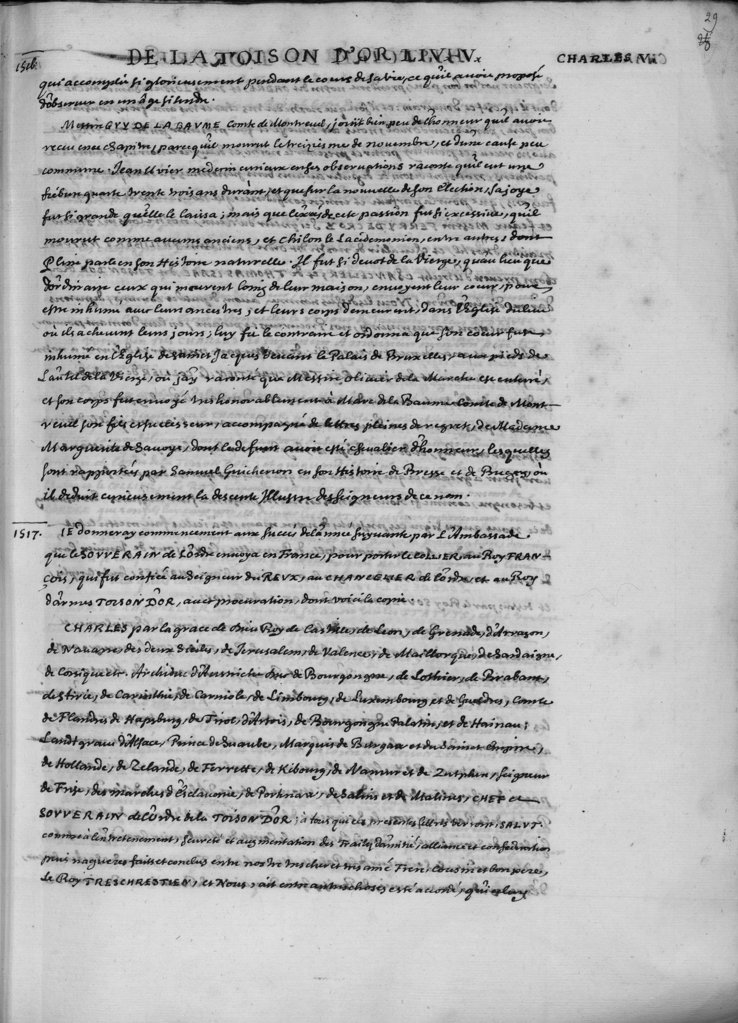 29
DE LA TOISON D'OR LIV. IV. CHARLES V.
1516.
qui accomplit si glorieusement pendant le cours de sa vie, ce qu'il avoit proposé
d'observer en un âge si tendre.
Messire GVY DE LA BAVME Comte de Montrevel, jouit bien peu de l'honneur qu'il avoit
receu en ce chapitre, parce qu'il mourut le treiziesme de novembre, et d'une cause peu
commune. Jean Uvier medecin curieux en ses observations raconte qu'il eut une
fiebvre quarte trente trois ans durant, et que sur la nouvelle de son élection, sa joye
fut si grande qu'elle le laissa; mais que l'excés de cete passion fut si excessive, qu'il
mourut comme aucuns anciens, et Chilon le Lacedemonien, entre autres, dont
Pline parle en son Histoire naturelle. Il fut si devot de la Vierge, qu'au lieu que
d'ordinaire ceux qui meurent loing de leur maison, envoyent leur coeur, pour
estre inhumé avec leurs ancestres, et leurs corps demeurent, dans l'Eglise du lieu
où ils achevent leurs jours; luy fit le contraire et ordonna que son coeur fut
inhumé en l'Eglise de Saint Jacques devant le Palais de Bruxelles, aux pieds de
l'autel de la Vierge, où j'ay raconté que Messire Olivier de la Marche est enterré,
et son corps fut envoyé tres honorablement à Marc de la Baume Comte de Mont-
revel son fils et successeur, accompagné de lettres pleines de regret, de Madame
Marguerite de Savoye, dont le defunt avoit esté chevalier d'honneur, lesquelles
sont rapportées par Samuel Guichenon en son Histoire de Bresse et de Bugey, où
il deduit curieusement la descente Illustre des seigneurs de ce nom.
1517.
JE donneray commencement aux succes de l'année suyvante par l'Ambassade
que le SOVVERAIN de l'Ordre envoya en France, pour porter le COLIER au Roy FRAN
ÇOIS, qui fut confiée au Seigneur du REVX, au CHANCELIER de l'Ordre, et au Roy
d'armes TOISON D'OR, avec procuration, dont voici la copie.
CHARLES par la grace de Dieu Roy de Castille, de Leon, de Grenade, d'Arragon,
de Navarre, des deux Siciles, de Jerusalem, de Valence, de Maillorque, de Sardaigne,
de Corsique etc. Archiduc d'Austriche Duc de Bourgongne, de Lothier, de Brabant,
de Stirie, de Carinthie, de Carniole, de Limbourg, de Luxembourg et de Gueldres, Comte
de Flandres de Hapsburg, de Tirol, d'Artois, de Bourgongne Palatin, et de Hainau;
Landtgrave d'Alsace, Prince de Suaube, Marquis de Burgau et du Saint Empire,
de Hollande, de Zelande, de Ferrette, de Kibourg, de Namur et de Zutphen, Seigneur
de Frise, des marches d'Esclavonie, de Portenau, de Salins et de Malines, CHEF et
SOVVERAIN de l'Ordre de la TOISON D'OR; à tous qui ces presentes lettres verront, SALVT.
comme à l'entretenement, seureté et augmentation des Traités d'amitié, alliance et confederation
puis naguerres faits et conclus entre nostre tres cher et tres amé Frere, Cousin et bon pere,
le Roy TRESCHRESTIEN, et Nous, ait entre autres choses esté accordé, qu'icelluy